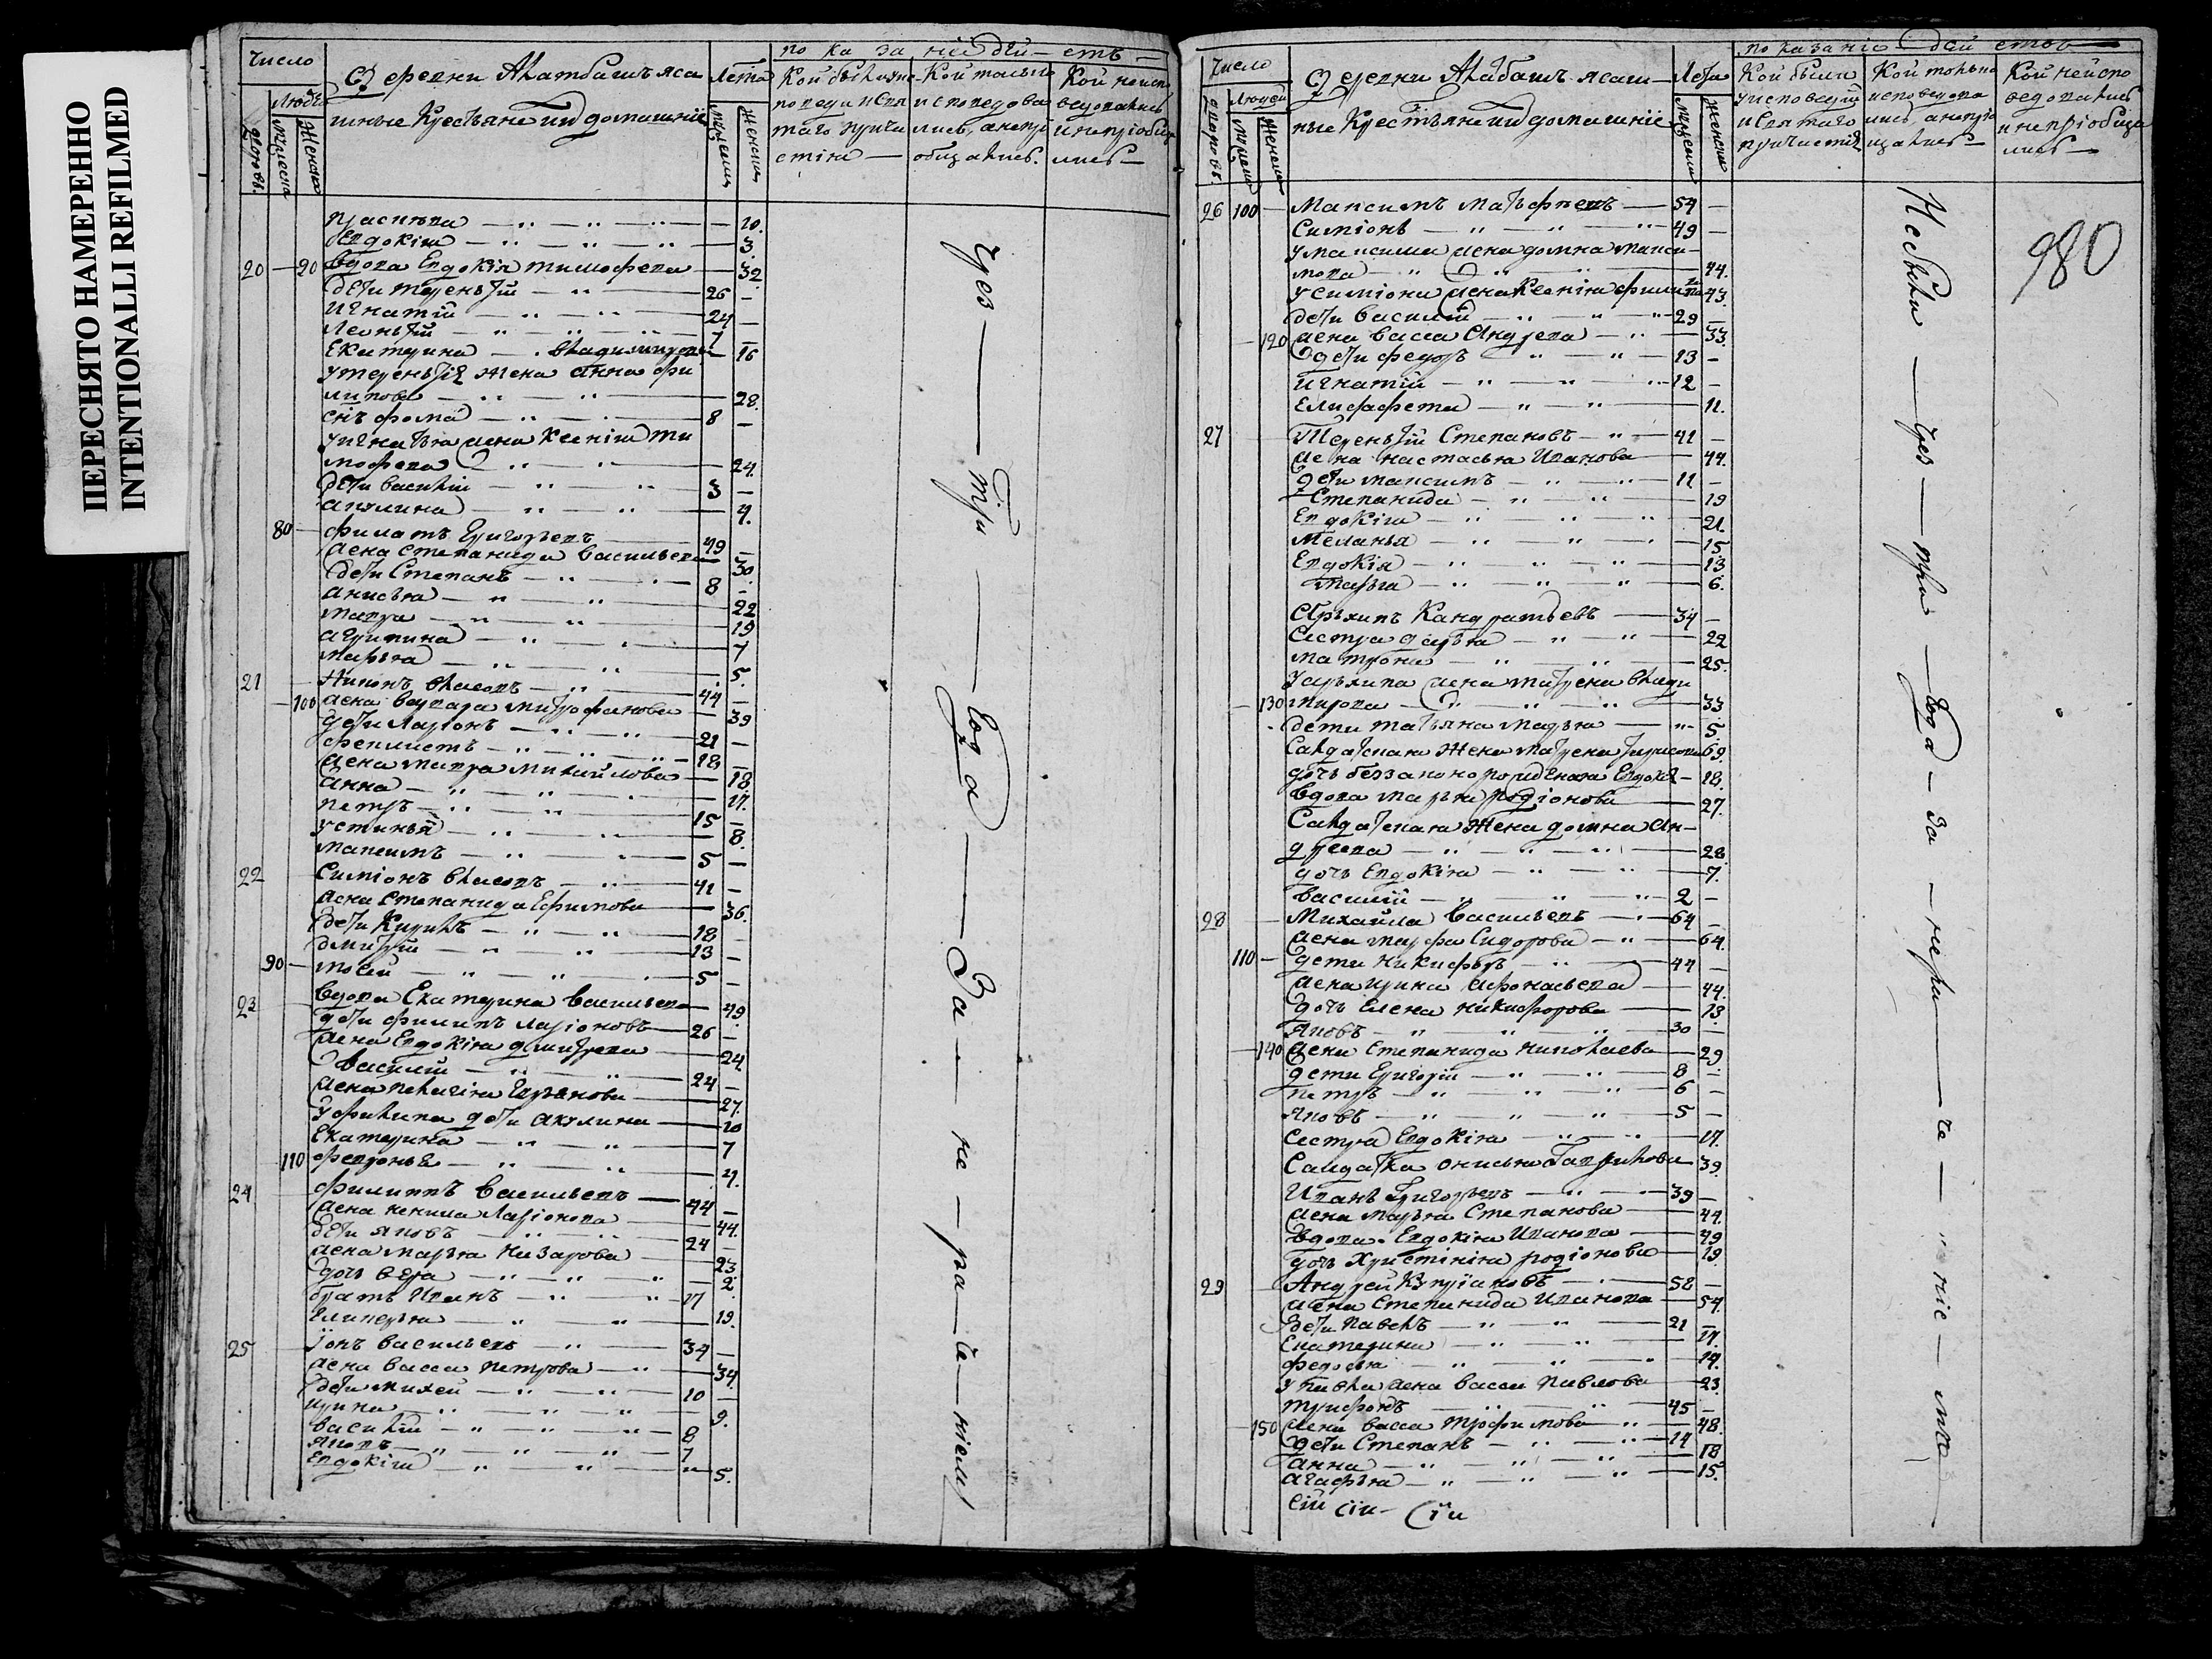 ПЕРЕСНЯТО НАМЕРЕННО
INTENTIONALLI REFILMED
Число
Людей
дворовъ
мужеска
женска
деревни Акатбашъ яса
шные Крестьяне ид домашніе
Лета
мужески
женски
показаніе действ
Кои были
поведи и свя
таго причи
стія
Кои только
исповедова
лись, а непрі
общались.
Кои неиспо
ведовались
и непріобща
лись
прасковья 10.
Евдокія 3.
20 20 вдова Евдокія тимофеева 32
дети терентій 26
Игнатій 24
Леонтій 7
Екатерина владимирова 16
У терентія жена Анна фи
липова 28.
снъ фома 8
У игнатья жена ксенія ти
мофеева 24.
дети василій 3
акулина 4.
80 филатъ григорьевъ 49
жена степанида васильева 30
дети Степанъ 8
анисья 22
мавра 19
агрипина 7
марья 5.
21 Никонъ власовъ 44
100 жена варвара митрофанова 39
дети Ларіонъ 21
феклистъ 18
жена мавра михайлова 18
Анна 17.
петръ 15
устинья 8.
максимъ 5
22 Симіонъ власовъ 41
жена степанида Ефимова 36.
дети Кирилъ 18
дмитрій 13
90 мосей 5
23 вдова Екатерина васильева 49
дети филипъ ларіоновъ 26
жена Евдокія дмитрева 24
василій 24
жена пелагія 27.
У филипа дети акулина 10
Екатерина 7
110 февронья 4.
24 филиппъ васильевъ 44
жена ненила Ларіонова 44.
дети яковъ 24
жена марья назарова 23
дочь вера 2
братъ Иванъ 17
19.
25 Іонъ васильевъ 34
жена васса петрова 34
дети михей 10
ирина 9.
василій 8
яковъ 7
Евдокія 5.
чрез три года За не ра че ніем
Число
Людей
дворовъ
мужеска
женска
деревни Акабашъ ясаш
ные Крестьяне ид домашніе
Лета
мужески
женски
показаніе действ
Кои были
у исповеди
и святаго
причастія
Кои только
исповедова
лись а непріо
щались
Кои неиспо
ведовались
и непріобща
лись
980
26 100 максимъ матфеевъ 54
Симіонъ 49
У максима жена домна макси
мова 44.
У симіона жена ксенія филипова 43
дети василій 29
120 жена васса Андреева 33
дети федоръ 13
игнатій 12
Елисафета 11.
27 Терентій Степановъ 41
жена настасья Иванова 44.
дети максимъ 11
Степанида 19
Евдокія 21
меланья 15
Евдокія 13
марья 6.
Архипъ Кандратьевъ 34
сестра дарья 22
матрона 25.
У архипа жена матрена влади
130 мирова 33
дети татьяна марья 5
Салдатская жена матрена 69.
дочь беззаконорожденая Евдокія 18
вдова марья родіонова 27.
Салдатская жена домна Ан
дреева 28
дочь Евдокія 7.
василій 2
28 Михайла васильевъ 64
жена марфа Сидорова 64
110 дети никифоръ 44
жена ирина Афонасьева 44.
дочь Елена никифорова 13
яковъ 30
140 жена степанида николаева 29
дети григорій 8
петръ 6
яковъ 5
сестра Евдокія 17.
Салдатка онисья Гаврилова 39
Иванъ Григорьевъ 39
жена марья Степанова 44.
вдова Евдокія Иванова 49
дочь Христинія родіонова 19
29 Андрей Кипріановъ 58
жена степанида Иванова 54.
дети павелъ 21
Екатерина 17.
федосья 14.
У павла жена васса павлова 23
трифонъ 45
150 жена васса трофимова 48.
дети Степанъ 14
анна 18
агафья 15
сіи сіи сіи
Небыли чрез три года за нера че ніе мъ